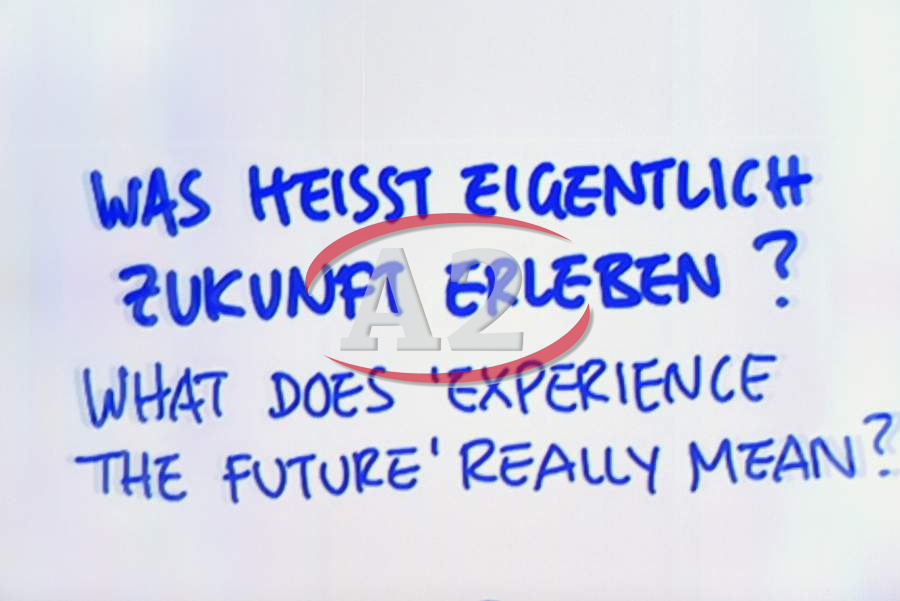 WAS HEISST EIGENTLICH
ZUKUNFT ERLEBEN ?
A2
WHAT DOES 'EXPERIENCE
THE FUTURE' REALLY MEAN?